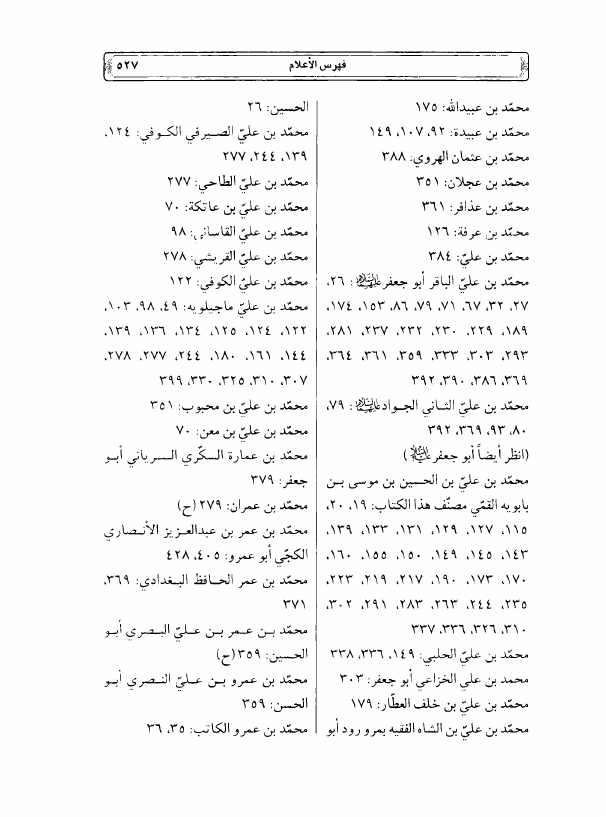 فهرس الأعلام ٥٢٧
محمّد بن عبيدالله: ١٧٥
محمّد بن عبيدة: ٩٢، ١٠٧، ١٤٩
محمّد بن عثمان الهروي: ٣٨٨
محمّد بن عجلان: ٣٥١
محمّد بن عذافر: ٣٦١
محمّد بن عرفة: ١٢٦
محمّد بن عليّ: ٣٨٤
محمّد بن عليّ الباقر أبو جعفر عليه‌السلام: ٢٦،
٢٧، ٣٢، ٦٧، ٧١، ٧٩، ٨٦، ١٥٣، ١٧٤،
١٨٩، ٢٢٩، ٢٣٠، ٢٣٢، ٢٣٧، ٢٨١،
٢٩٣، ٣٠٣، ٣٣٣، ٣٥٩، ٣٦١، ٣٦٤،
٣٦٩، ٣٨٦، ٣٩٠، ٣٩٢
محمّد بن عليّ الثـاني الجـواد عليه‌السلام: ٧٩،
٨٠، ٩٣، ٣٦٩، ٣٩٢
(انظر أيضاً أبو جعفر عليه‌السلام)
محمّد بن عليّ بن الحسين بن موسى بـن
بابويه القمّي مصنّف هذا الكتاب: ١٩، ٢٠،
١١٥، ١٢٧، ١٢٩، ١٣١، ١٣٣، ١٣٩،
١٤٣، ١٤٥، ١٤٩، ١٥٠، ١٥٥، ١٦٠،
١٧٠، ١٧٣، ١٩٠، ٢١٧، ٢١٩، ٢٢٣،
٢٣٥، ٢٤٤، ٢٦٣، ٢٨٣، ٢٩١، ٣٠٢،
٣١٠، ٣٢٦، ٣٣٦، ٣٣٧
محمّد بن عليّ الحلبي: ١٤٩، ٣٣٦، ٣٣٨
محمد بن علي الخزاعي أبو جعفر: ٣٠٣
محمّد بن عليّ بن خلف العطّار: ١٧٩
محمّد بن عليّ بن الشاه الفقيه بمرو رود أبو
الحسين: ٢٦
محمّد بن عليّ الصـيرفي الكـوفي: ١٢٤،
١٣٩، ٢٤٤، ٢٧٧
محمّد بن عليّ الطاحي: ٢٧٧
محمّد بن عليّ بن عاتكة: ٧٠
محمّد بن عليّ القاساني: ٩٨
محمّد بن عليّ القريشي: ٢٧٨
محمّد بن عليّ الكوفي: ١٢٢
محمّد بن عليّ ماجيلويه: ٤٩، ٩٨، ١٠٣،
١٢٢، ١٢٤، ١٢٥، ١٣٤، ١٣٦، ١٣٩،
١٤٤، ١٦١، ١٨٠، ٢٤٤، ٢٧٧، ٢٧٨،
٣٠٧، ٣١٠، ٣٢٥، ٣٣٠، ٣٩٩
محمّد بن عليّ بن محبوب: ٣٥١
محمّد بن عليّ بن معن: ٧٠
محمّد بن عمارة السكّري السـرياني أبـو
جعفر: ٣٧٩
محمّد بن عمران: ٢٧٩(ح)
محمّد بن عمر بن عبدالعـزيز الأنـصاري
الكجّي أبو عمرو: ٤٠٥، ٤٢٨
محمّد بن عمر الحـافظ البـغدادي: ٣٦٩،
٣٧١
محمّد بـن عـمر بـن عـليّ البـصري أبـو
الحسين: ٣٥٩(ح)
محمّد بن عمرو بـن عـليّ النـصري أبـو
الحسن: ٣٥٩
محمّد بن عمرو الكاتب: ٣٥، ٣٦